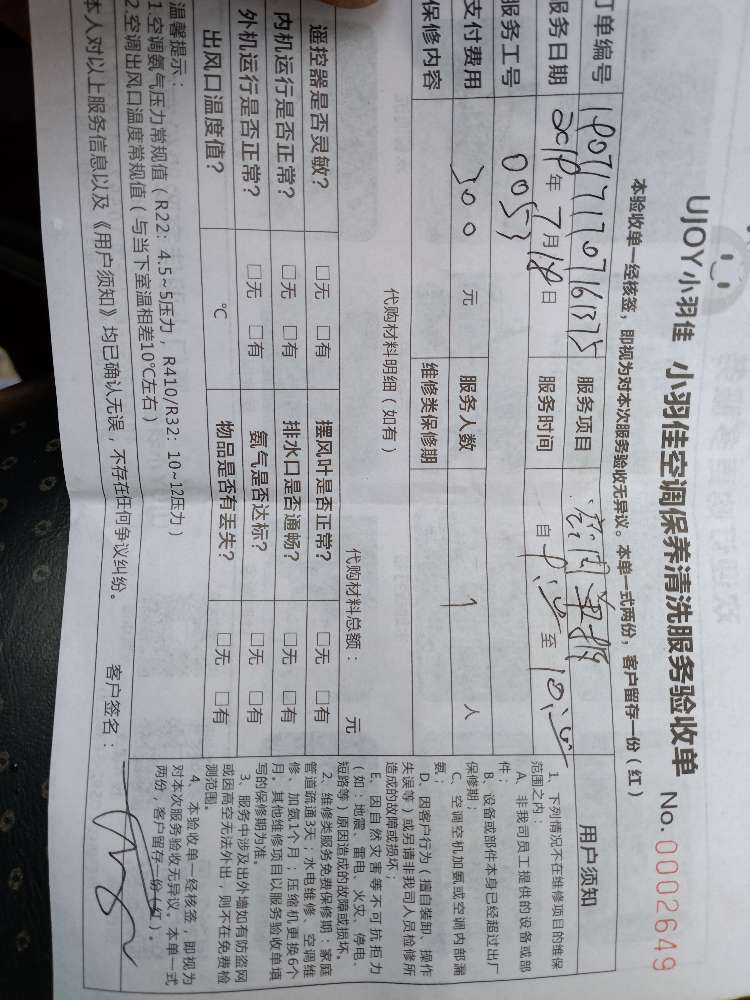 UJOY小羽佳 小羽佳空调保养清洗服务验收单 No.0002649
本验收单一经核签，即视为对本次服务验收无异议。本单一式两份，客户留存一份（红）
订单编号 服务项目
服务日期 年 7月18日 服务时间 自 至
服务工号 0053
支付费用 300 元 服务人数 1 人
保修内容 维修类保修期
代购材料明细（如有） 代购材料总额： 元
遥控器是否灵敏? □无 □有 摆风叶是否正常? □无 □有
内机运行是否正常? □无 □有 排水口是否通畅? □无 □有
外机运行是否正常? □无 □有 氨气是否达标? □无 □有
出风口温度值? ℃ 物品是否有丢失? □无 □有
温馨提示：
1空调氨气压力常规值（R22：4.5~5压力，R410/R32：10~12压力）
2空调出风口温度常规值（与当下室温相差10℃左右）
本人对以上服务信息以及《用户须知》均已确认无误，不存在任何争议纠纷。 客户签名：
用户须知
1、下列情况不在维修项目的维保
范围之内：
A、非我司员工提供的设备或部
件；
B、设备或部件本身已经超过出厂
保修期；
C、空调空机加氨或空调内部漏
氨；
D、因客户行为（擅自装卸、操作
失误等）或另请非我司人员检修所
造成的故障或损坏；
E、因自然灾害等不可抗拒力
（如：地震、雷电、火灾、停电、
短路等）原因造成的故障或损坏。
2、维修类服务免费保修期：家庭
管道疏通3天；水电维修、空调维
修、加氨1个月；压缩机更换6个
月。其他维修项目以服务验收单填
写的保修期为准。
3、服务中涉及出外墙如有防盗网
或因高空无法外出，则不在免费检
测范围。
4、本验收单一经核签，即视为
对本次服务验收无异议。本单一式
两份，客户留存一份（红）。